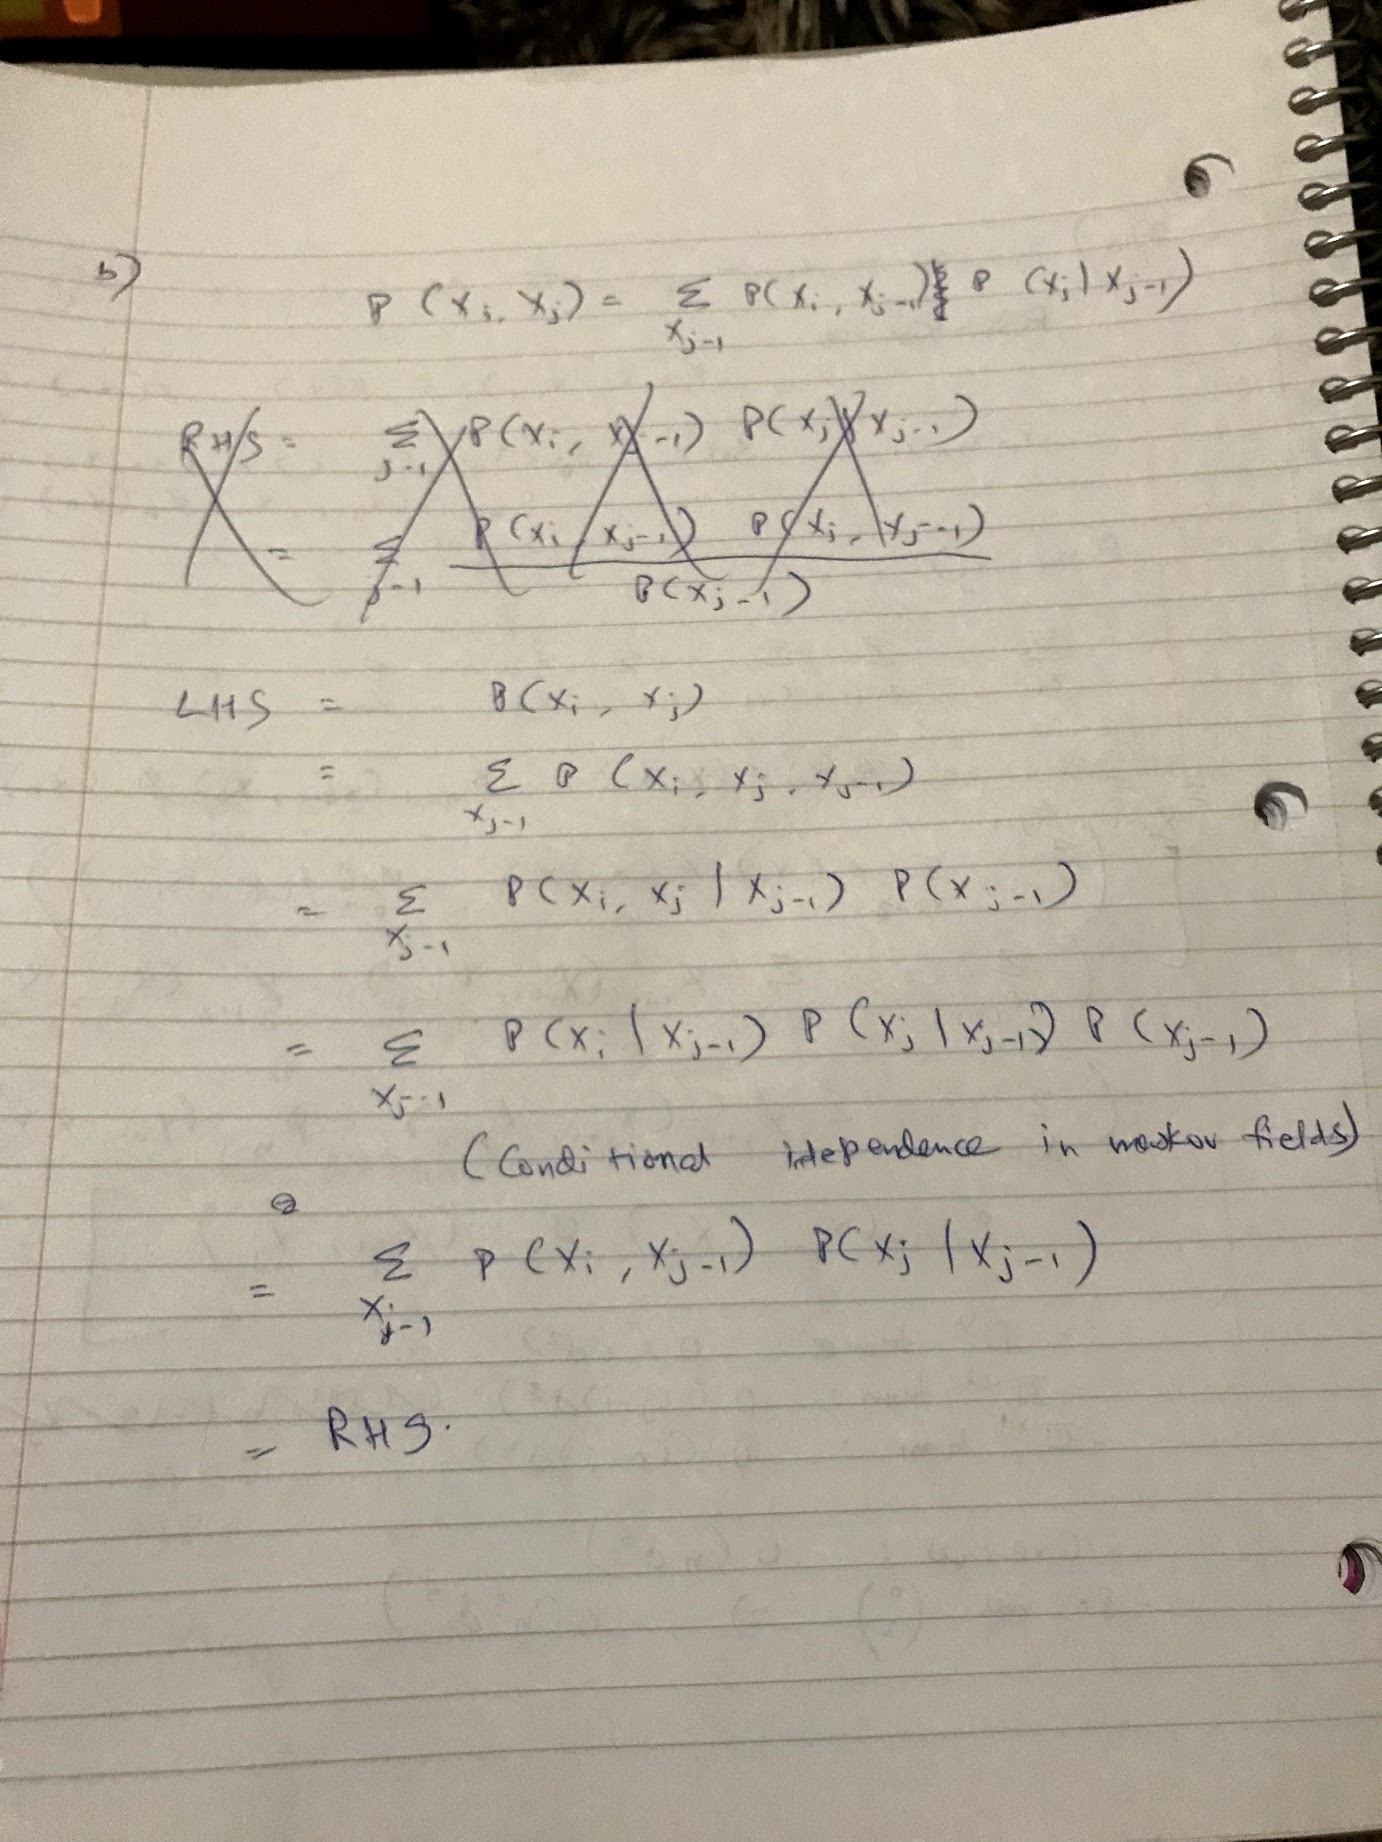 b)
P (Xi, Xj) = Σ P(Xi, Xj-1) P (Xj | Xj-1)
Xj-1
RHS = Σ P(Xi, Xj-1) P(Xj | Xj-1)
j-1
= Σ P(Xi, Xj-1) P(Xj, Xj-1)
j-1 P(Xj-1)
LHS = P(Xi, Xj)
= Σ P (Xi, Xj, Xj-1)
Xj-1
= Σ P(Xi, Xj | Xj-1) P(Xj-1)
Xj-1
= Σ P(Xi | Xj-1) P(Xj | Xj-1) P(Xj-1)
Xj-1
(Conditional idependence in markov fields)
= Σ P(Xi, Xj-1) P(Xj | Xj-1)
Xj-1
= RHS.